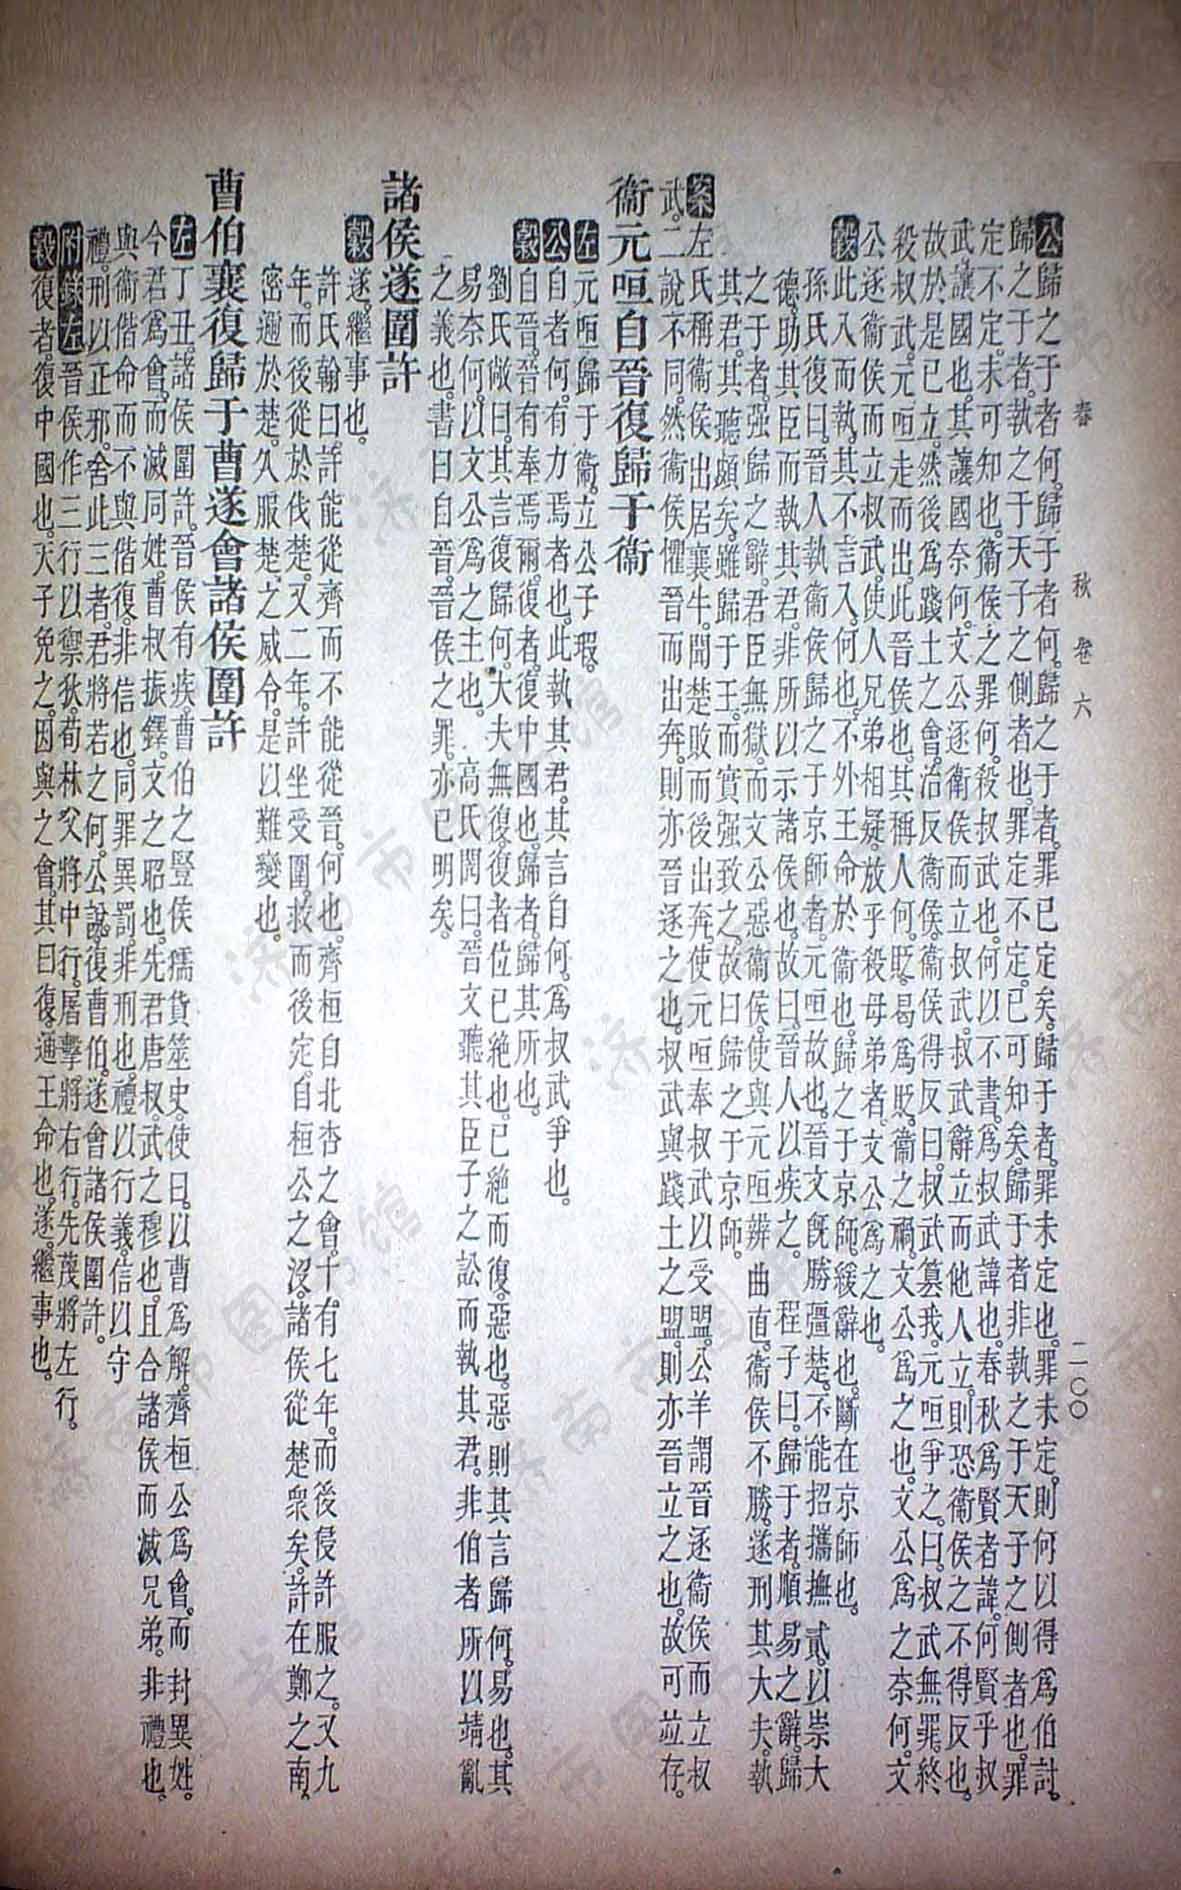 春　秋　卷六　二〇〇
公歸之于者何。歸于者何。歸之于者。罪已定矣。歸于者。罪未定也。罪未定。則何以得爲伯討。
歸之于者。執之于天子之側者也。罪定不定。已可知矣。歸于者。非執之于天子之側者也。罪
定不定。未可知也。衛侯之罪何。殺叔武也。何以不書。爲叔武諱也。春秋爲賢者諱。何賢乎叔
武。讓國也。其讓國奈何。文公逐衛侯而立叔武。叔武辭立而他人立。則恐衛侯之不得反也。
故於是已立。然後爲踐土之會。治反衛侯。衛侯得反曰。叔武篡我。元咺爭之。曰。叔武無罪。終
殺叔武。元咺走而出。此晉侯也。其稱人何。貶。曷爲貶。衛之禍。文公爲之也。文公爲之奈何。文
公逐衛侯而立叔武。使人兄弟相疑。放乎殺母弟者。文公爲之也。
穀此入而執。其不言入。何也。不外王命於衛也。歸之于京師。緩辭也。斷在京師也。
孫氏復曰。晉人執衛侯歸之于京師者。元咺故也。晉文既勝彊楚。不能招攜撫貳。以崇大
德。助其臣而執其君。非所以示諸侯也。故曰。晉人以疾之。　程子曰。歸于者。順易之辭。歸
之于者。强歸之辭。君臣無獄。而文公惡衛侯。使與元咺辨曲直。衛侯不勝。遂刑其大夫。執
其君。其聽頗矣。雖歸于王。而實强致之。故曰歸之于京師。
案左氏稱衛侯出居襄牛。聞楚敗而後出奔。使元咺奉叔武以受盟。公羊謂晉逐衛侯而立叔
武。二說不同。然衛侯懼晉而出奔。則亦晉逐之也。叔武與踐土之盟。則亦晉立之也。故可竝存。
衞元咺自晉復歸于衞
左元咺歸于衛。立公子瑕。
公自者何。有力焉者也。此執其君。其言自何。爲叔武爭也。
穀自晉。晉有奉焉爾。復者。復中國也。歸者。歸其所也。
劉氏敞曰。其言復歸何。大夫無復。復者位已絶也。已絶而復。惡也。惡則其言歸何。易也。其
易奈何。以文公爲之主也。　高氏閌曰。晉文聽其臣子之訟而執其君。非伯者所以靖亂
之義也。書曰自晉。晉侯之罪。亦已明矣。
諸侯遂圍許
穀遂。繼事也。
許氏翰曰。許能從齊而不能從晉。何也。齊桓自北杏之會。十有七年。而後侵許服之。又九
年。而後從於伐楚。又二年。許坐受圍。救而後定。自桓公之沒。諸侯從楚衆矣。許在鄭之南。
密邇於楚。久服楚之威令。是以難變也。
曹伯襄復歸于曹遂會諸侯圍許
左丁丑。諸侯圍許。晉侯有疾。曹伯之豎侯獳貨筮史。使曰。以曹爲解。齊桓公爲會。而封異姓。
今君爲會。而滅同姓。曹叔振鐸。文之昭也。先君唐叔。武之穆也。且合諸侯而滅兄弟。非禮也。
與衛偕命。而不與偕復。非信也。同罪異罰。非刑也。禮以行義。信以守
禮。刑以正邪。舍此三者。君將若之何。公說。復曹伯。遂會諸侯圍許。
附錄左晉侯作三行以禦狄。荀林父將中行。屠擊將右行。先蔑將左行。
穀復者。復中國也。天子免之。因與之會。其曰復。通王命也。遂。繼事也。